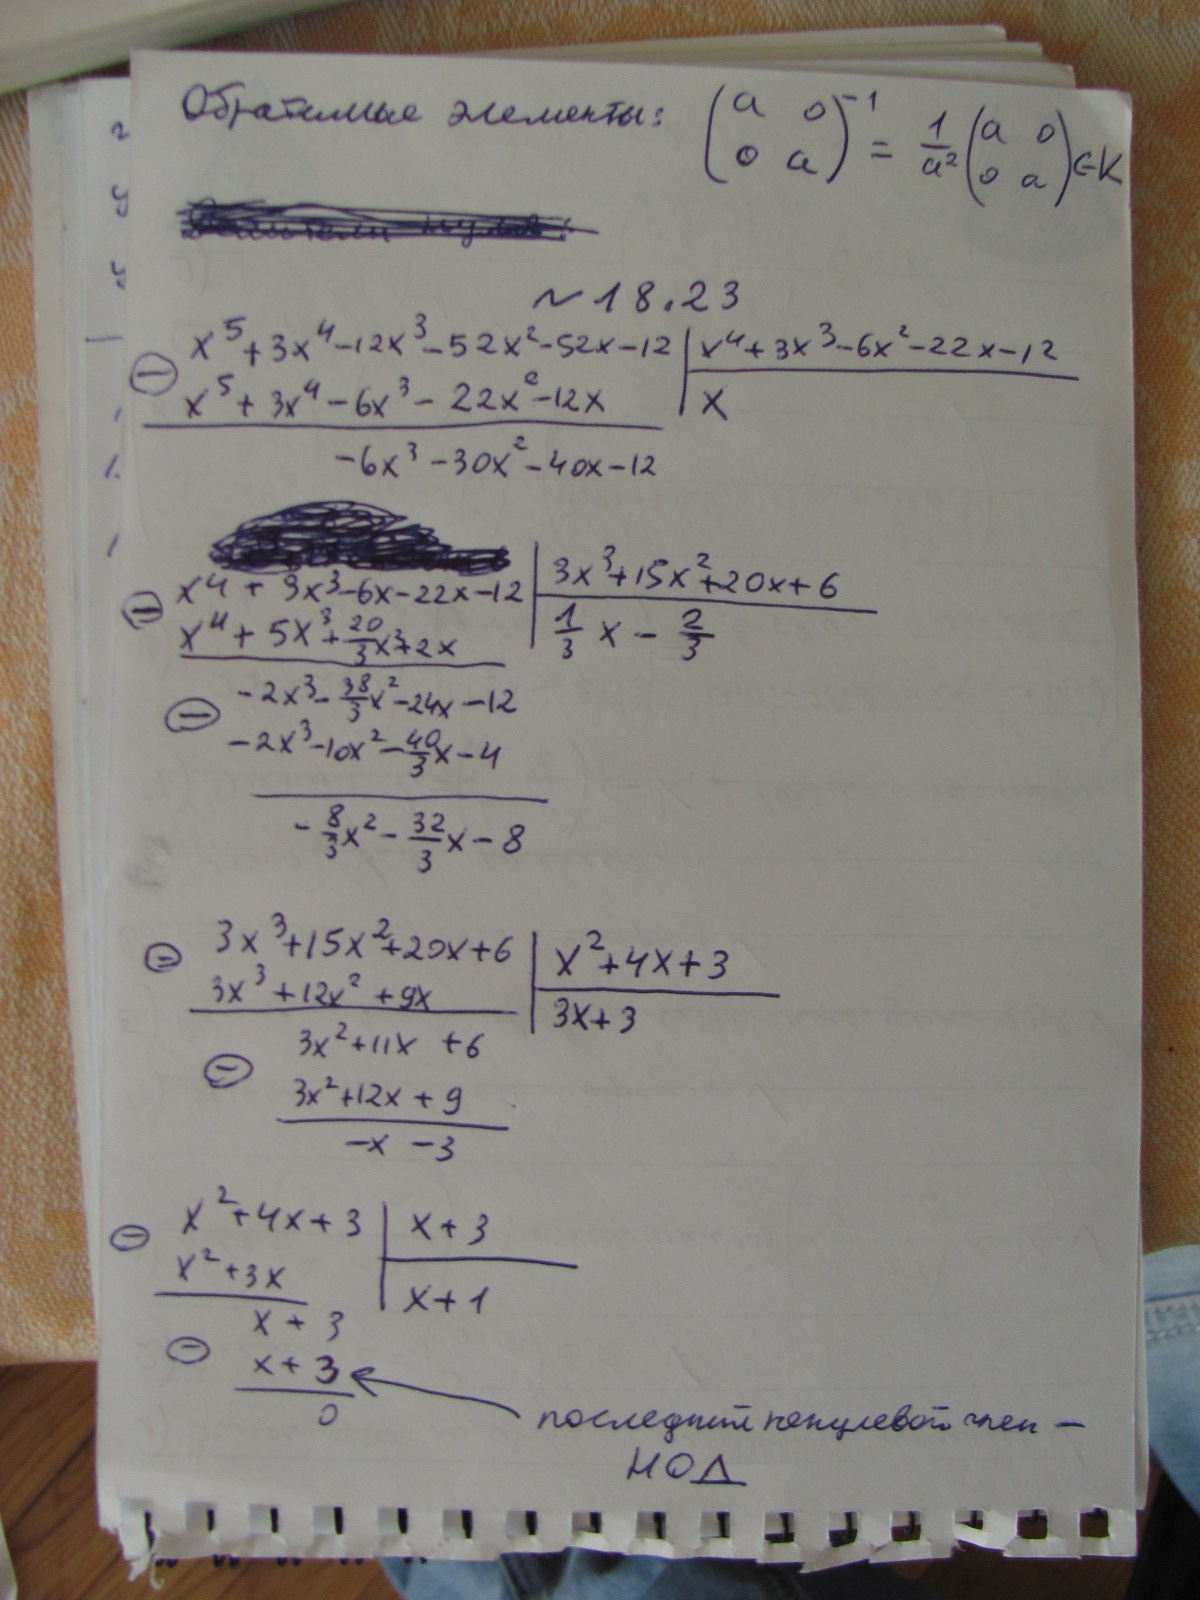 Обратимые элементы: (a 0 0 a)^-1 = 1/a² (a 0 0 a) ∈ K
~18.23
x⁵+3x⁴-12x³-52x²-52x-12 | x⁴+3x³-6x²-22x-12
x⁵+3x⁴-6x³-22x²-12x | x
-6x³-30x²-40x-12
x⁴+3x³-6x-22x-12 | 3x³+15x²+20x+6
x⁴+5x³+20/3x²+2x | 1/3 x - 2/3
-2x³-38/3x²-24x-12
-2x³-10x²-40/3x-4
-8/3x²-32/3x-8
3x³+15x²+20x+6 | x²+4x+3
3x³+12x²+9x | 3x+3
3x²+11x +6
3x²+12x+9
-x -3
x²+4x+3 | x+3
x²+3x | x+1
x+3
x+3
0
последний ненулевой член —
НОД